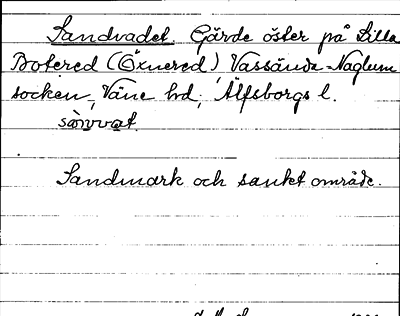 Sandvadet. Gärde öster på Lilla
Botered (Öxnered), Vassända-Naglum
socken, Väne hd, Älfsborgs l.
sànvat.
Sandmark och sankt område.